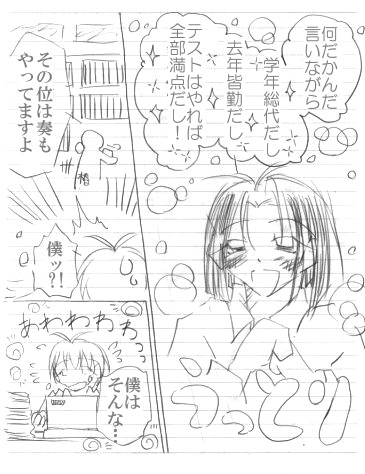 何だかんだ
言いながら
学年総代だし
去年皆勤だし
テストはやれば
全部満点だし！
うっとり
その位は奏も
やってますよ
僕ッ？！
あわわわわっっ
僕は
そんな…